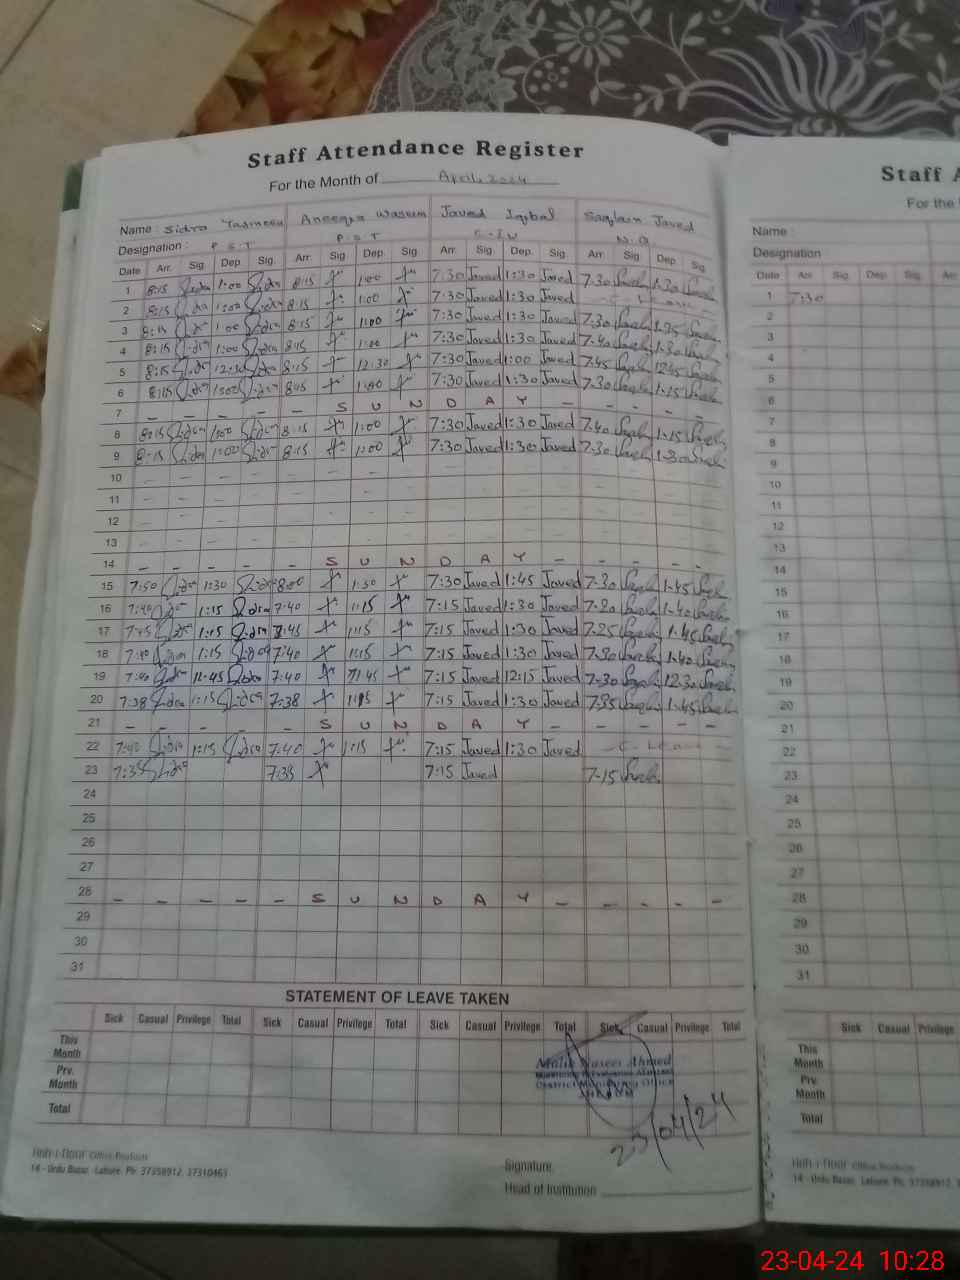 Staff Attendance Register
For the Month of April, 2024
Name : Sidra Yasmeen Aneeqa Waseem Javed Iqbal Saqlain Javed
Designation : P.S.T P.S.T C-IV N.Q.
Date Arr. Sig Dep Sig. Arr Sig Dep. Sig Arr. Sig. Dep. Sig. Arr. Sig Dep. Sig.
1 8:15 Sidra 1:00 Sidra 8:15 1:00 7:30 Javed 1:30 Javed 7.30 1.30
2 8:15 Sidra 1:00 Sidra 8:15 1:00 7:30 Javed 1:30 Javed - C. Leave -
3 8:15 Sidra 1:00 Sidra 8:15 1:00 7:30 Javed 1:30 Javed 7.30
4 8:15 Sidra 1:00 Sidra 8:15 1:00 7:30 Javed 1:30 Javed 7.40 1.30
5 8:15 Sidra 12:30 Sidra 8:15 12:30 7:30 Javed 1:00 Javed 7.45 12.45
6 8:15 Sidra 1:00 Sidra 8:15 1:00 7:30 Javed 1:30 Javed 7.30 1.15
7 - - - - - S U N D A Y - - - - -
8 8:15 Sidra 1:00 Sidra 8:15 1:00 7:30 Javed 1:30 Javed 7.40 1.15
9 8:15 Sidra 1:00 Sidra 8:15 1:00 7:30 Javed 1:30 Javed 7.30 1.30
10
11
12
13
14 S U N D A Y - - - - -
15 7:50 Sidra 1:30 Sidra 8:00 1:30 7:30 Javed 1:45 Javed 7.30 1.45
16 7:40 Sidra 1:15 Sidra 7:40 1:15 7:15 Javed 1:30 Javed 7.20 1.40
17 7:45 Sidra 1:15 Sidra 7:45 1:15 7:15 Javed 1:30 Javed 7.25 1.45
18 7:40 Sidra 1:15 Sidra 7:40 1:15 7:15 Javed 1:30 Javed 7.30 1.40
19 7:40 Sidra 11:45 Sidra 7:40 11:45 7:15 Javed 12:15 Javed 7.30 12.30
20 7:38 Sidra 1:15 Sidra 7:38 1:15 7:15 Javed 1:30 Javed 7.35 1.45
21 - - - - - S U N D A Y - - - - -
22 7:40 Sidra 1:15 Sidra 7:40 1:15 7:15 Javed 1:30 Javed - C. Leave -
23 7:35 Sidra 7:35 7:15 Javed 7.15
24
25
26
27
28 - - - - - S U N D A Y - - - - -
29
30
31
STATEMENT OF LEAVE TAKEN
Sick Casual Privilege Total Sick Casual Privilege Total Sick Casual Privilege Total Sick Casual Privilege Total
This Month
Prv. Month
Total
Malik Naseer Ahmed
District Monitoring Office
JHELUM
23/04/24
Office Products
14 - Urdu Bazar, Lahore. Ph: 37358912, 37310463
Signature.
Head of Institution
Staff A
For the
Name :
Designation
Date Arr. Sig. Dep. Sig. Arr
1 7:30
2
3
4
5
6
7
8
9
10
11
12
13
14
15
16
17
18
19
20
21
22
23
24
25
26
27
28
29
30
31
Sick Casual Privilege
This Month
Prv. Month
Total
Office Products
14 - Urdu Bazar, Lahore. Ph: 37358912,
23-04-24 10:28